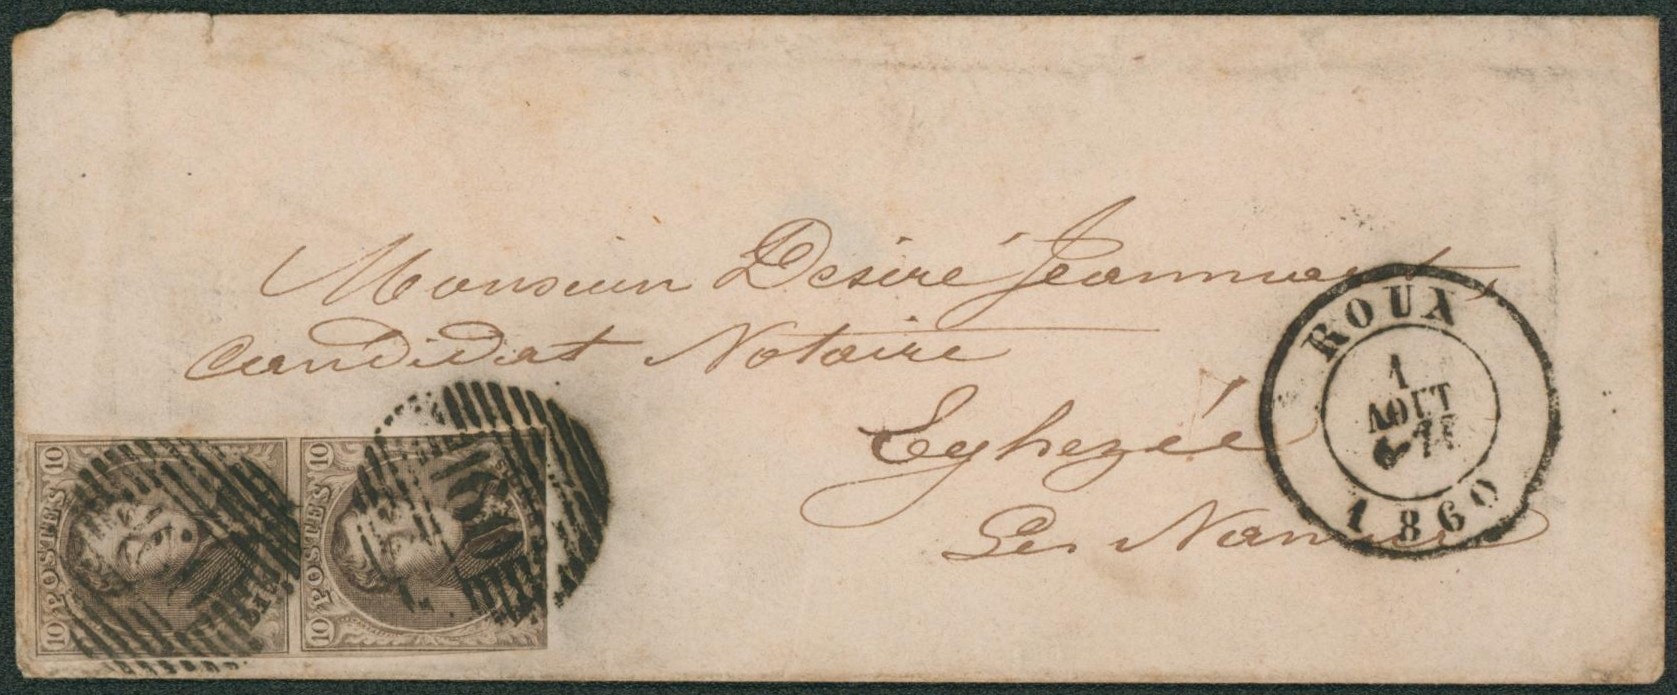 Monsieur Desiré Jeanmart,
Candidat Notaire
Eghezée
Namur
ROUX
1
AOUT
1860
10 POSTES 10
10 POSTES 10